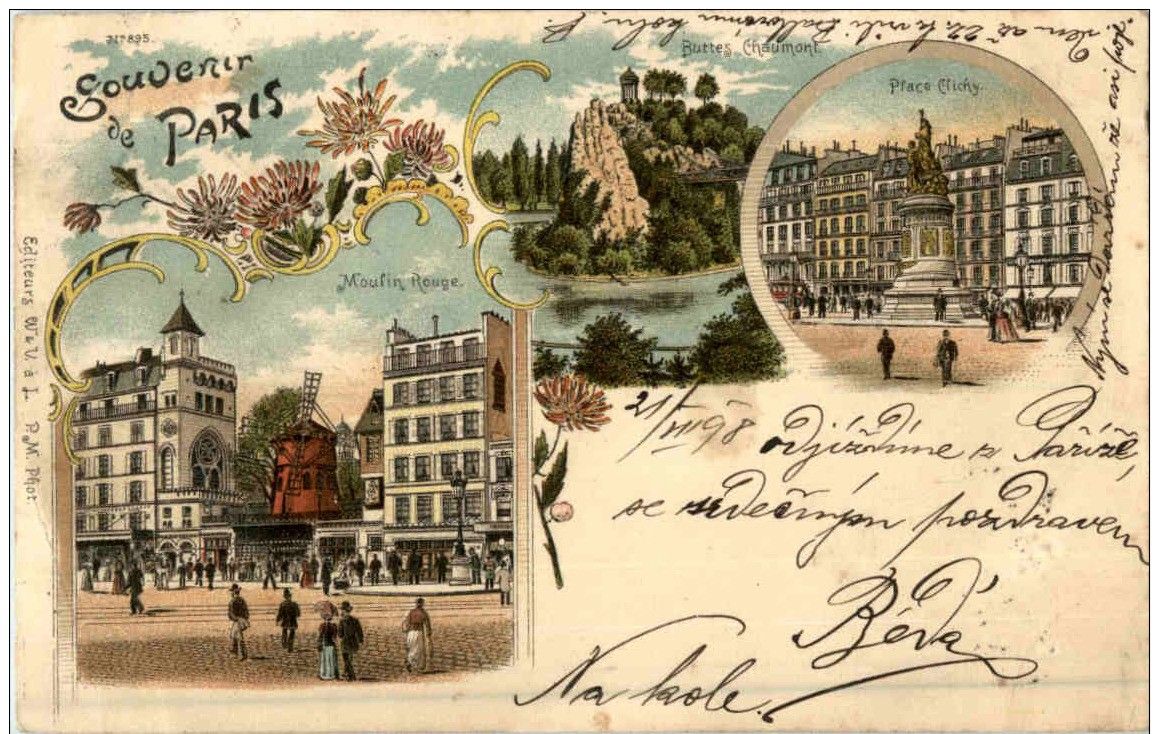 No 895.
Souvenir
de PARIS
Buttes Chaumont.
Place Clichy.
Moulin Rouge.
Editeurs W. & V. à L. P. M. Phot.
21/VII 98
odjíždíme z Paříže,
se srdečným pozdravem
Béďa
Na kole.